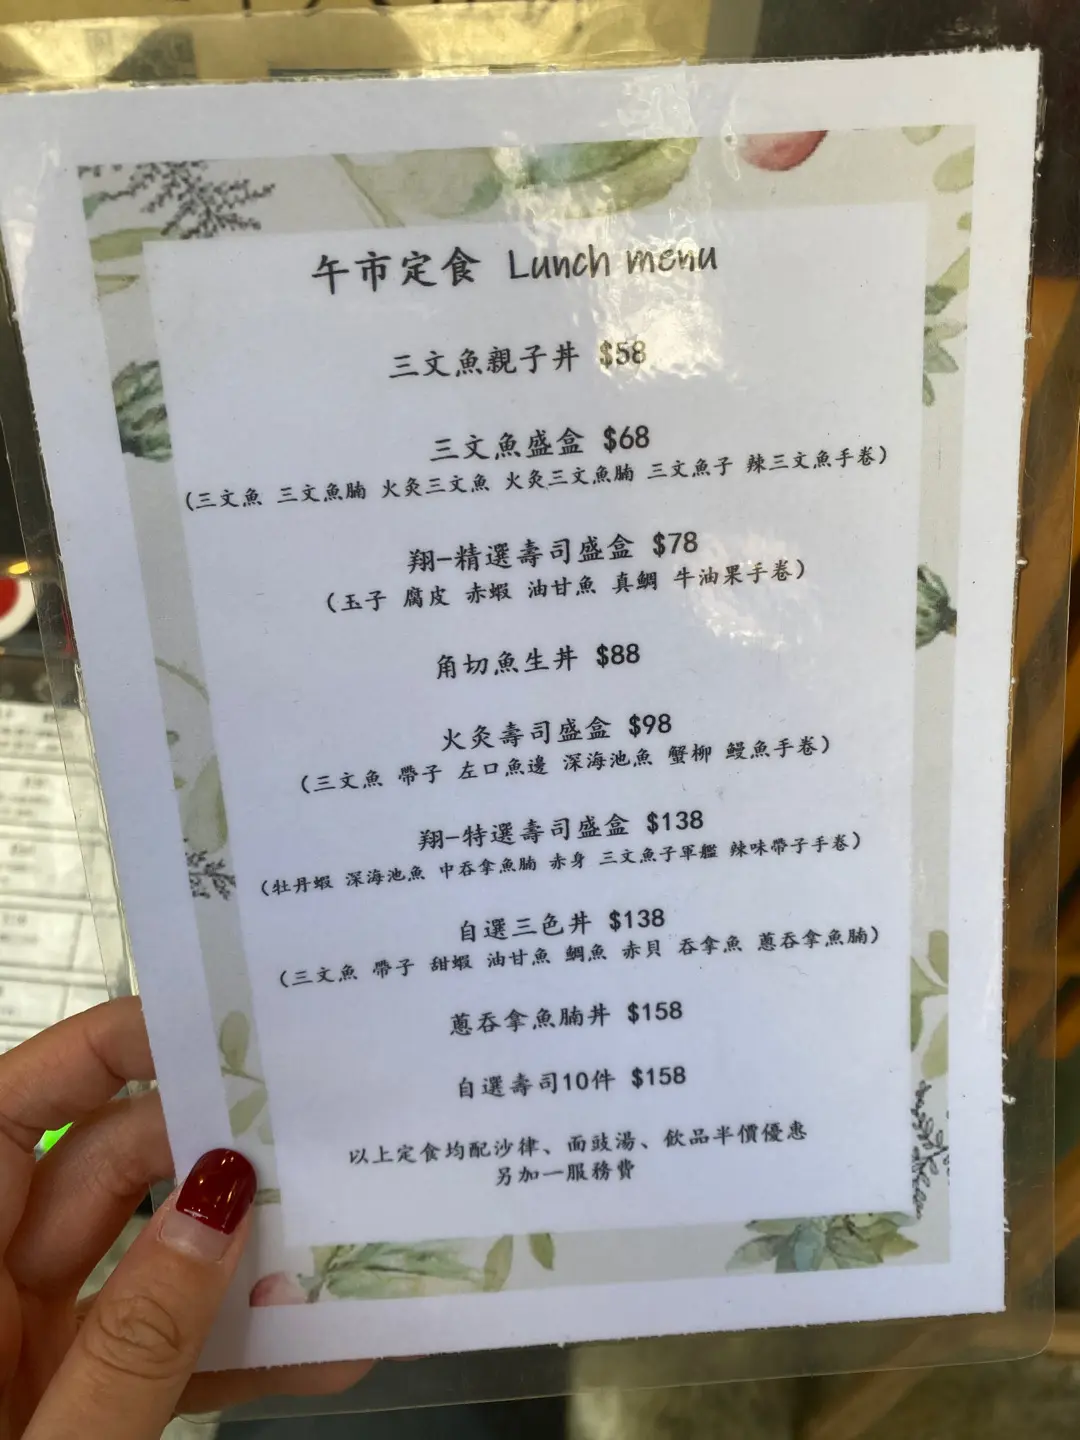 午市定食 Lunch menu
三文魚親子丼 $58
三文魚盛盒 $68
(三文魚 三文魚腩 火炙三文魚 火炙三文魚腩 三文魚子 辣三文魚手卷)
翔-精選壽司盛盒 $78
(玉子 腐皮 赤蝦 油甘魚 真鯛 牛油果手卷)
角切魚生丼 $88
火炙壽司盛盒 $98
(三文魚 帶子 左口魚邊 深海池魚 蟹柳 鰻魚手卷)
翔-特選壽司盛盒 $138
(牡丹蝦 深海池魚 中吞拿魚腩 赤身 三文魚子軍艦 辣味帶子手卷)
自選三色丼 $138
(三文魚 帶子 甜蝦 油甘魚 鯛魚 赤貝 吞拿魚 蔥吞拿魚腩)
蔥吞拿魚腩丼 $158
自選壽司10件 $158
以上定食均配沙律、面豉湯、飲品半價優惠
另加一服務費